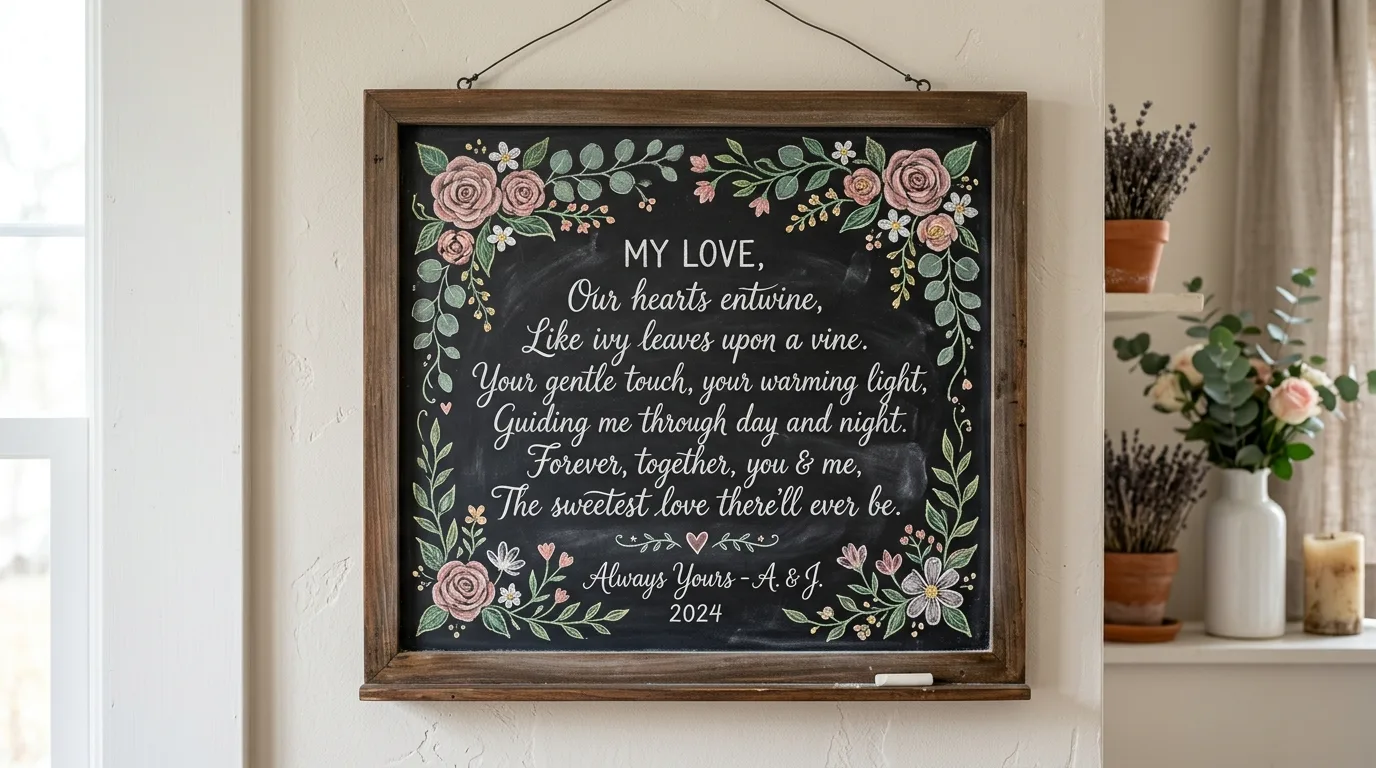 MY LOVE,
Our hearts entwine,
Like ivy leaves upon a vine.
Your gentle touch, your warming light,
Guiding me through day and night.
Forever, together, you & me,
The sweetest love there'll ever be.
Always Yours - A. & J.
2024